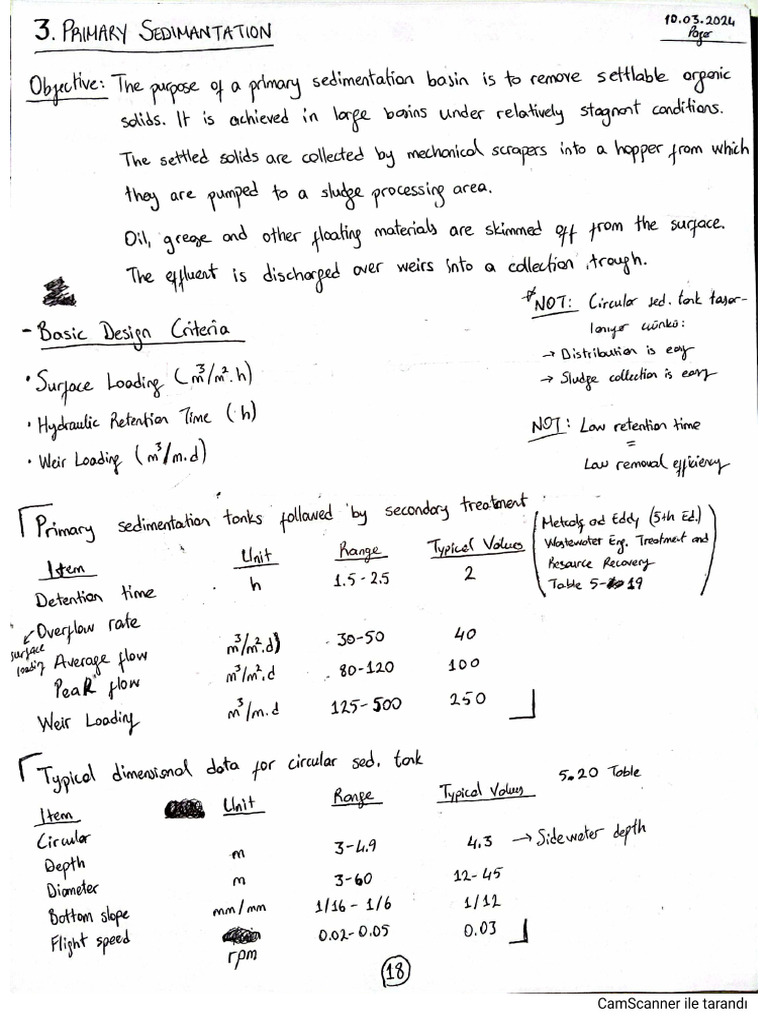 3. PRIMARY SEDIMANTATION
10.03.2024
Objective: The purpose of a primary sedimentation basin is to remove settlable organic
solids. It is achieved in large basins under relatively stagnant conditions.
The settled solids are collected by mechanical scrapers into a hopper from which
they are pumped to a sludge processing area.
Oil, grease and other floating materials are skimmed off from the surface.
The effluent is discharged over weirs into a collection trough.
- Basic Design Criteria
• Surface Loading (m³/m².h)
• Hydraulic Retention Time (h)
• Weir Loading (m³/m.d)
* NOT: Circular sed. tank tasar-
lanıyor çünkü:
→ Distribution is easy
→ Sludge collection is easy
NOT: Low retention time
=
Low removal efficiency
Primary sedimentation tanks followed by secondary treatment
(Metcalf and Eddy (5th Ed.)
Wastewater Eng. Treatment and
Resource Recovery
Table 5-19)
Item Unit Range Typical Values
Detention time h 1.5-2.5 2
Overflow rate
surface loading
Average flow m³/m².d) 30-50 40
Peak flow m³/m².d 80-120 100
Weir Loading m³/m.d 125-500 250
Typical dimensional data for circular sed. tank
5.20 Table
Item Unit Range Typical Values
Circular
Depth m 3-4.9 4.3 → Side water depth
Diameter m 3-60 12-45
Bottom slope mm/mm 1/16 - 1/6 1/12
Flight speed rpm 0.02-0.05 0.03
18
CamScanner ile tarandı